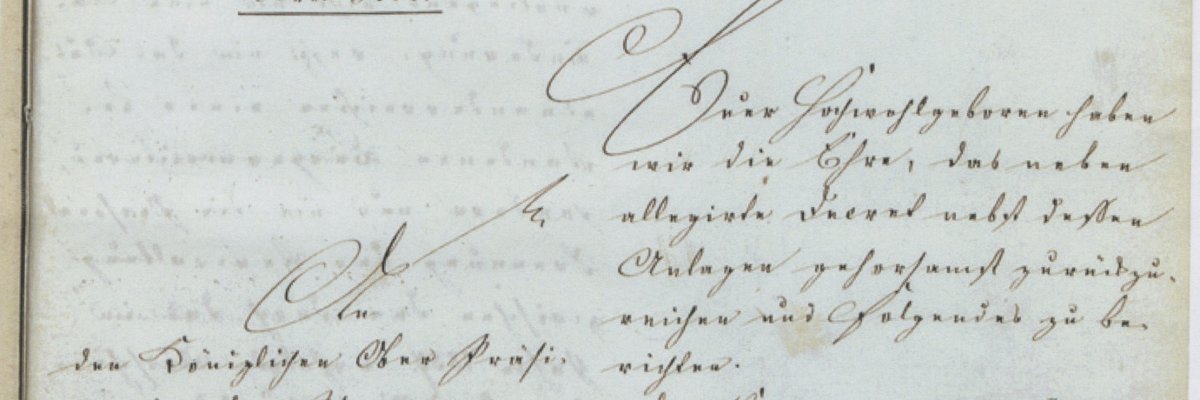 Euer Hochwohlgeboren haben
wir die Ehre, das neben
allegirte Decret nebst dessen
Anlagen gehorsamst zurückzu-
reichen und Folgendes zu be-
richten.
An
den Königlichen Ober Präsi-